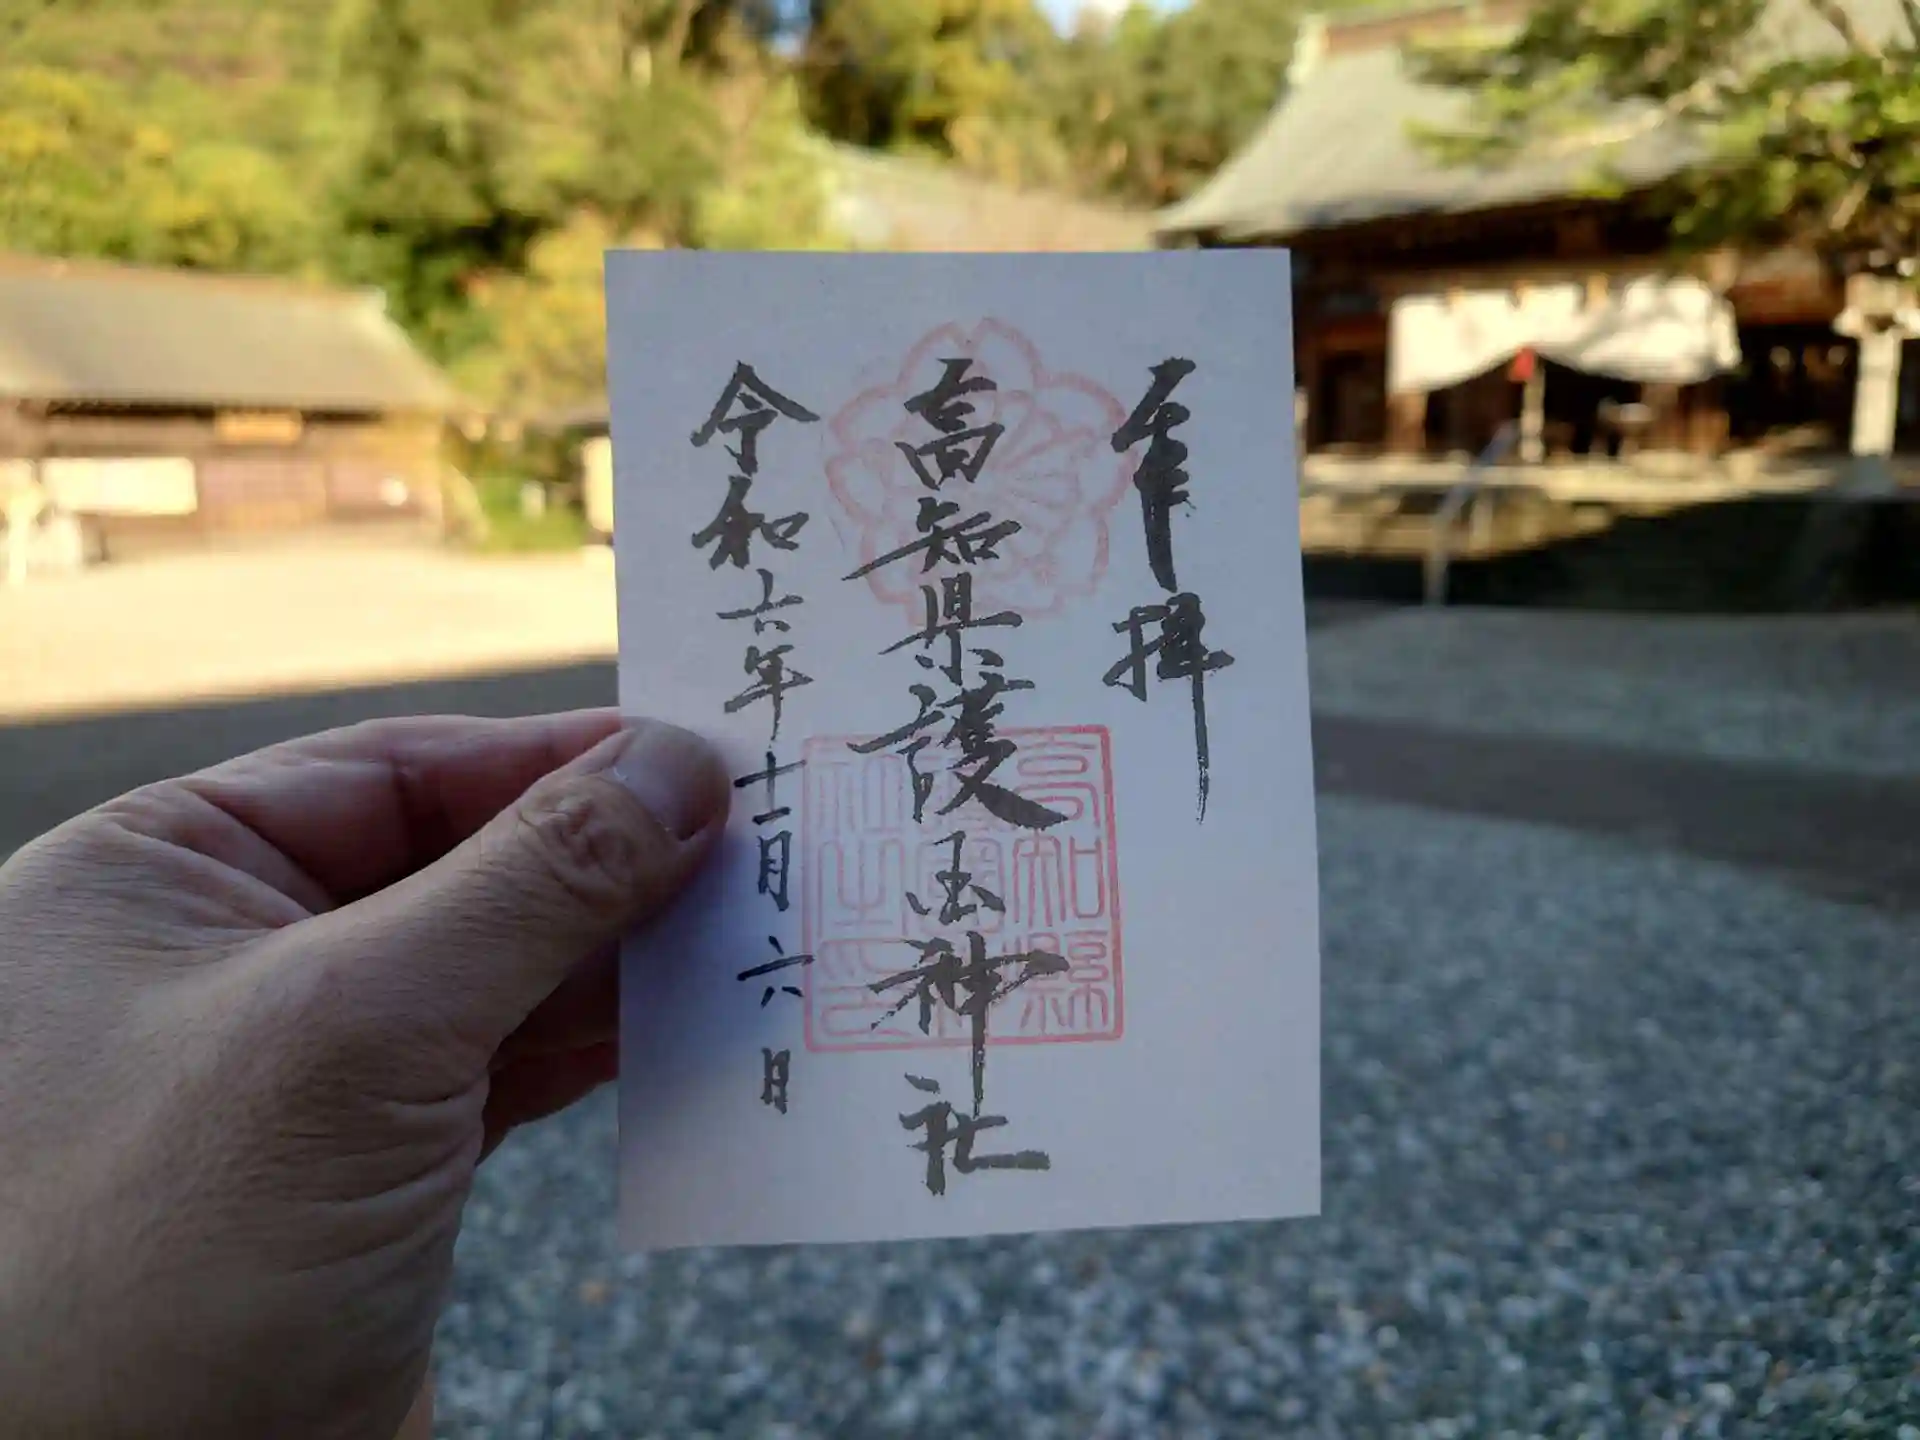 奉拝
高知県護国神社
令和六年十二月六日
高知縣
護國神
社之印